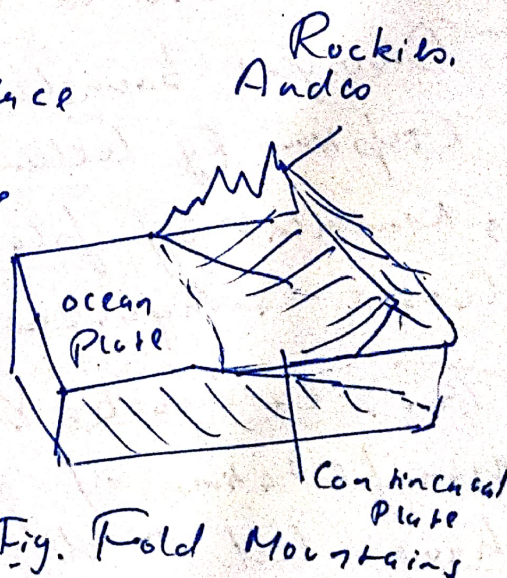 Rockies.
Andes
ocean
Plate
Continental
Plate
Fig. Fold Mountains